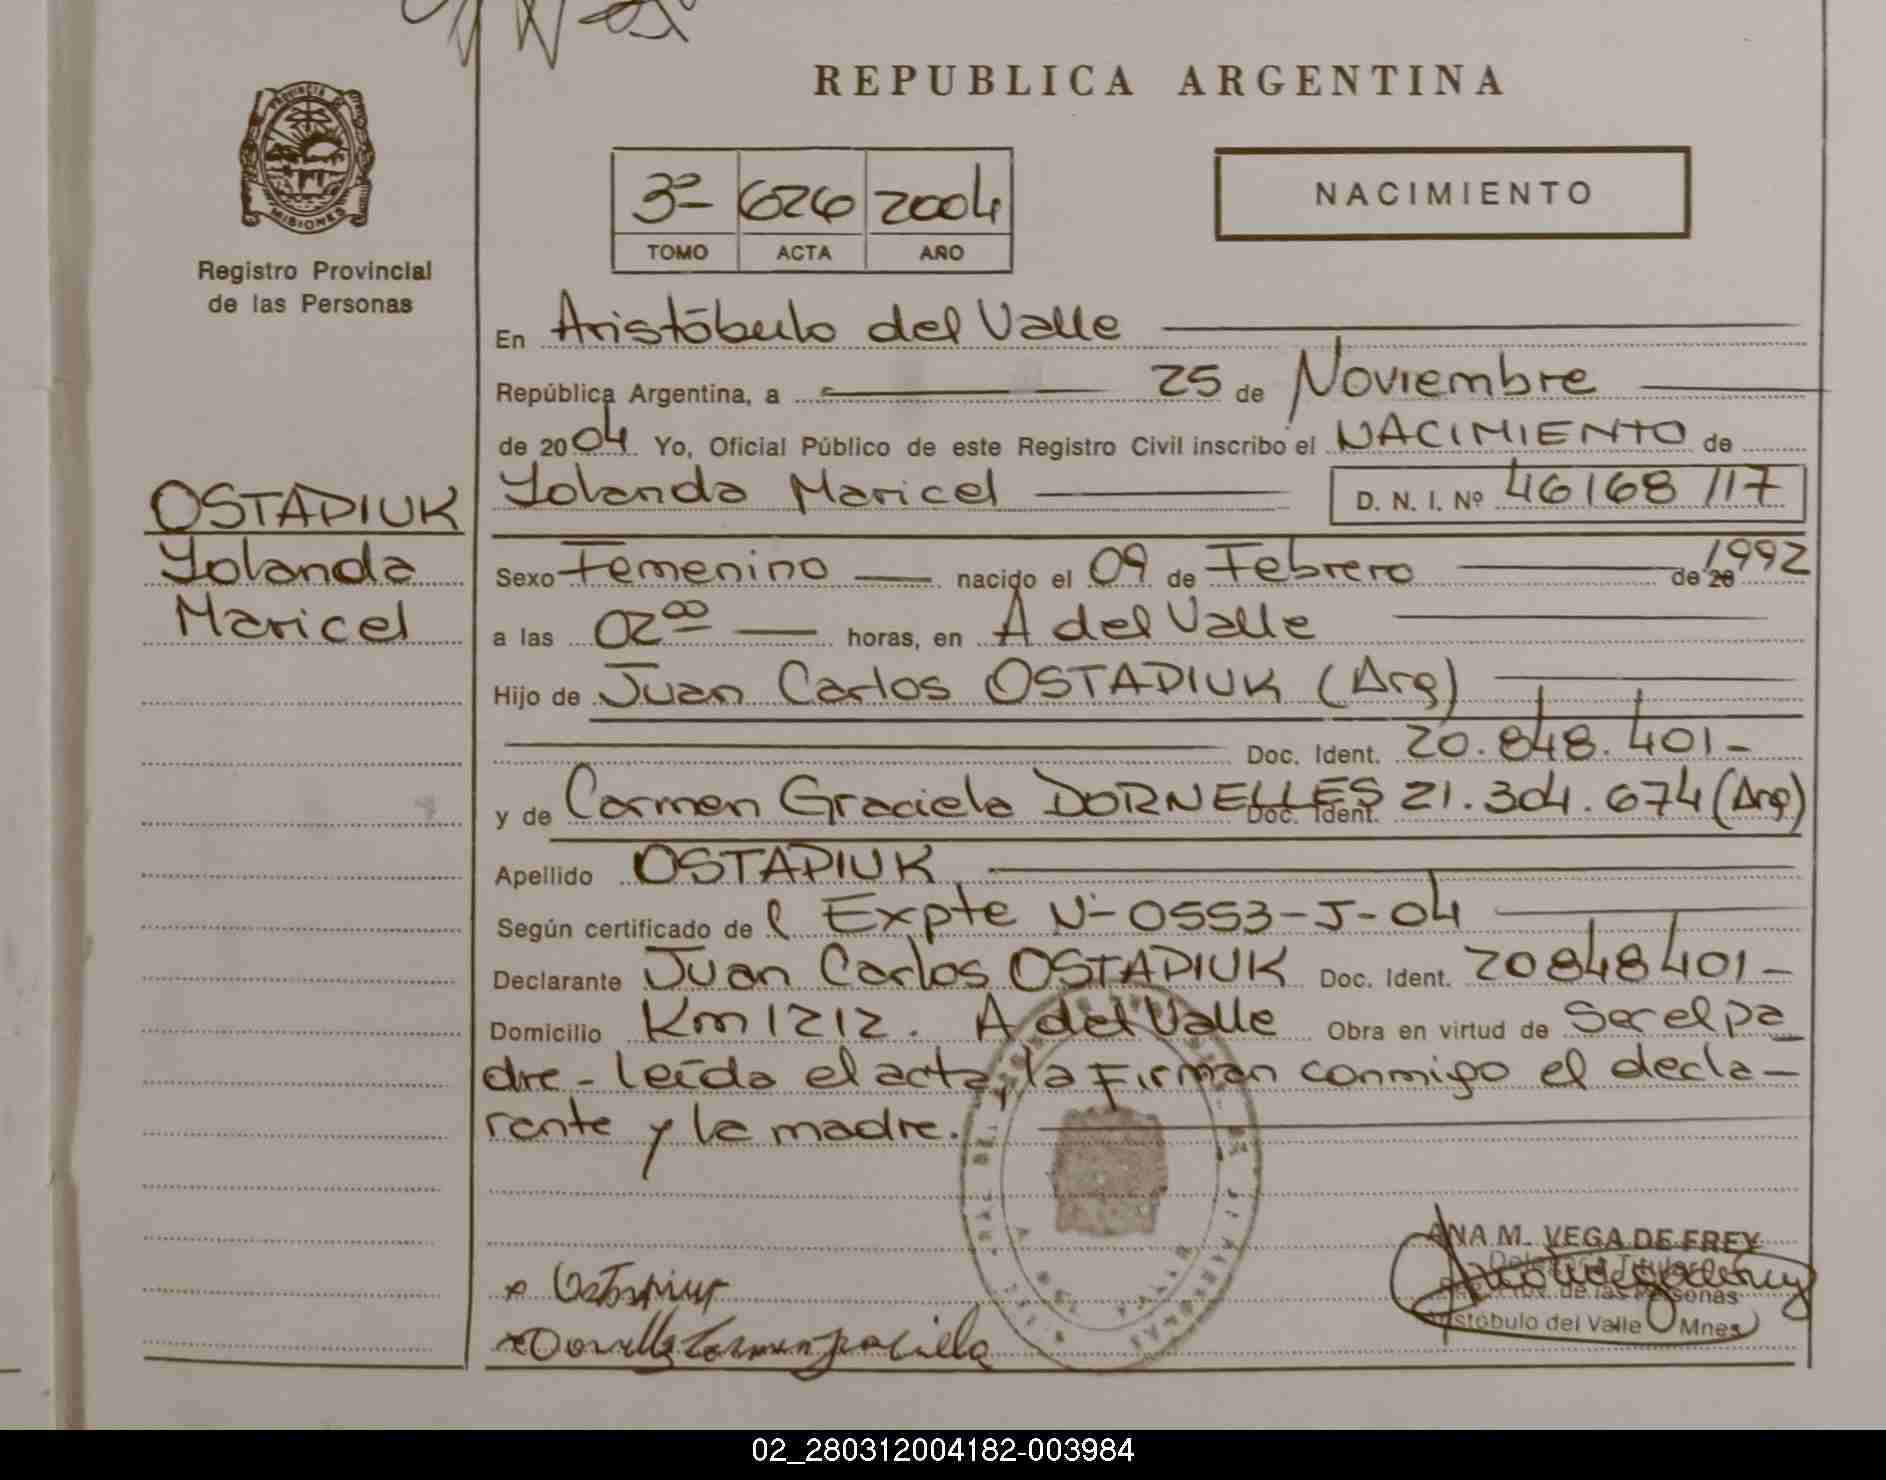 REPUBLICA ARGENTINA
PROVINCIA DE
MISIONES
Registro Provincial
de las Personas
3º 626 2004
TOMO ACTA AÑO
NACIMIENTO
En Aristóbulo del Valle
República Argentina, a 25 de Noviembre
de 2004 Yo, Oficial Público de este Registro Civil inscribo el NACIMIENTO de
Yolanda Maricel D. N. I. Nº 46168117
OSTAPIUK
Yolanda
Maricel
Sexo Femenino nacido el 09 de Febrero de 20 1992
a las 02 00 horas, en A del Valle
Hijo de Juan Carlos OSTAPIUK (Arg)
Doc. Ident. 20.848.401-
y de Carmen Graciela DORNELLES Doc. Ident. 21.304.674 (Arg)
Apellido OSTAPIUK
Según certificado de Expte Nº 0553-J-04
Declarante Juan Carlos OSTAPIUK Doc. Ident. 20848401-
Domicilio Km 1212. A del Valle Obra en virtud de Ser el pa
dre - leída el acta, la Firman conmigo el decla-
rante y la madre.
ANA M. VEGA DE FREY
de las Personas
Aristóbulo del Valle Mnes
x Ostapiuk
x Dornelles Carmen Graciela
02_280312004182-003984